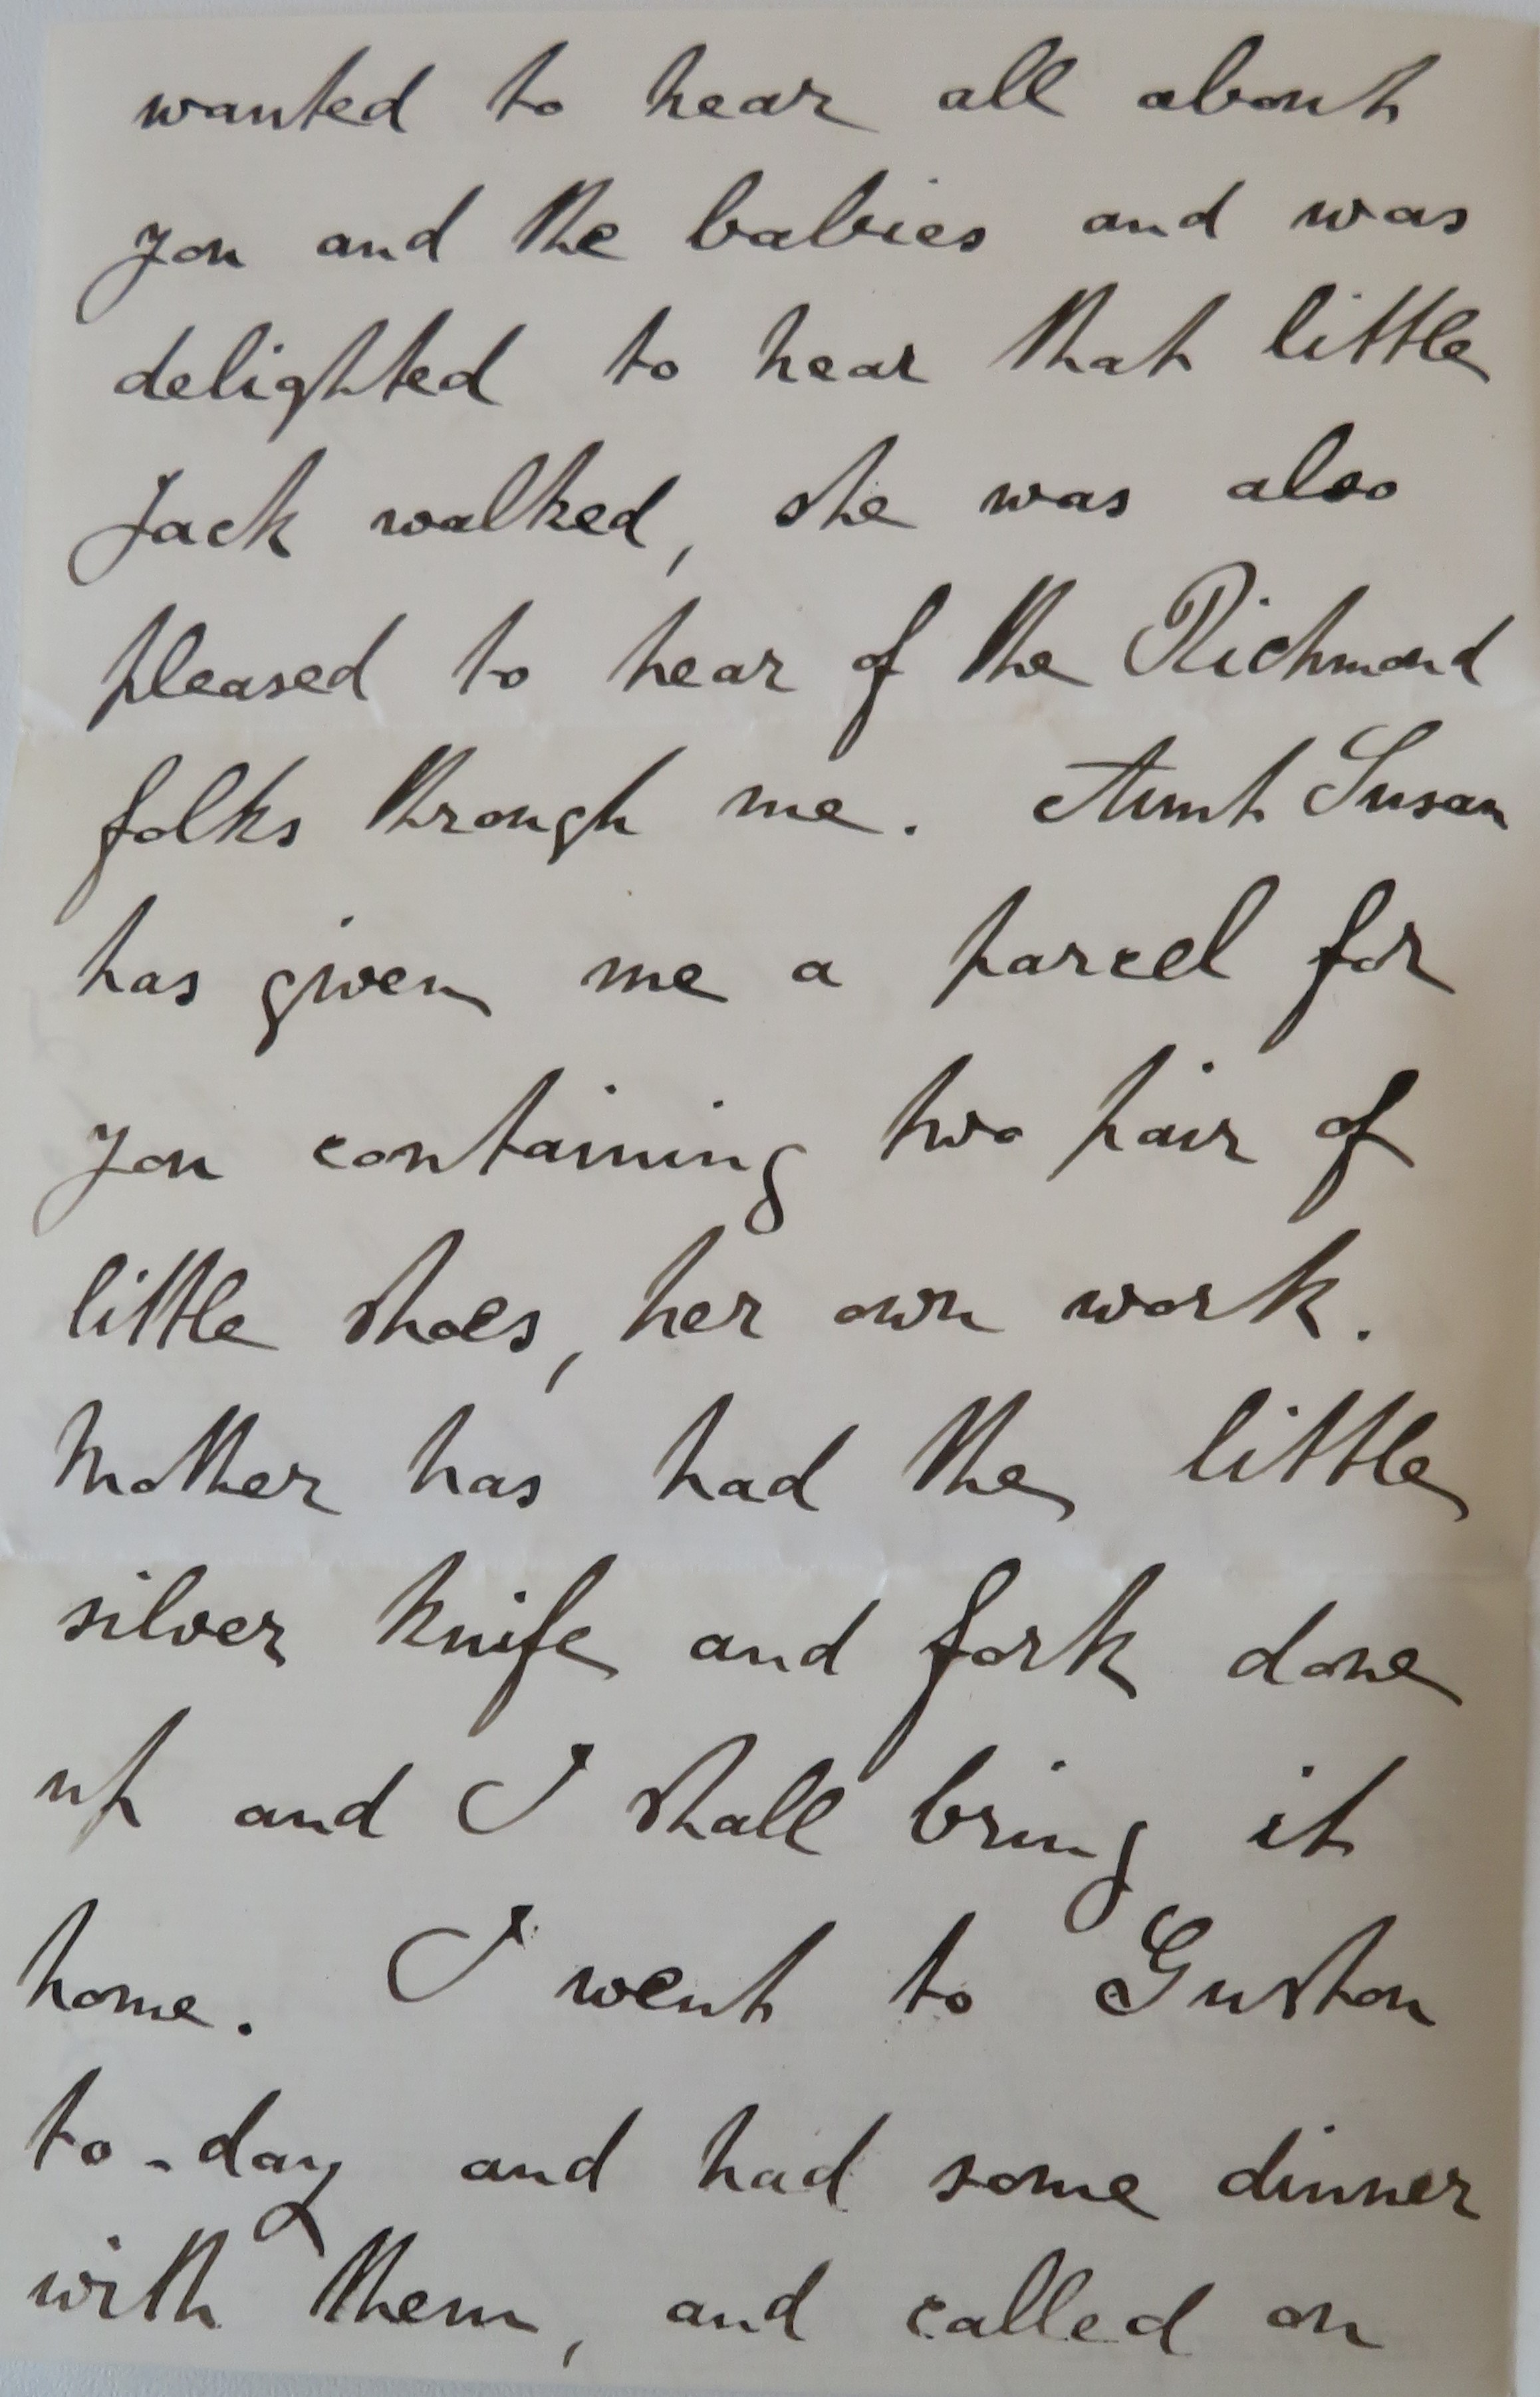 wanted to hear all about
you and the babies and was
delighted to hear that little
Jack walked, she was also
pleased to hear of the Richmond
folks through me. Aunt Susan
has given me a parcel for
you containing two pair of
little shoes, her own work.
Mother has had the little
silver knife and fork done
up and I shall bring it
home. I went to Guston
to-day and had some dinner
with them, and called on